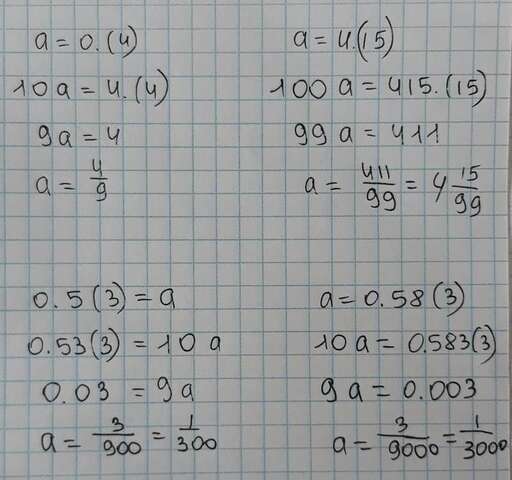 a = 0.(4)
10a = 4.(4)
9a = 4
a = 4/9
a = 4.(15)
100a = 415.(15)
99a = 411
a = 411/99 = 4 15/99
0.5(3) = a
0.53(3) = 10a
0.03 = 9a
a = 3/900 = 1/300
a = 0.58(3)
10a = 0.583(3)
9a = 0.003
a = 3/9000 = 1/3000